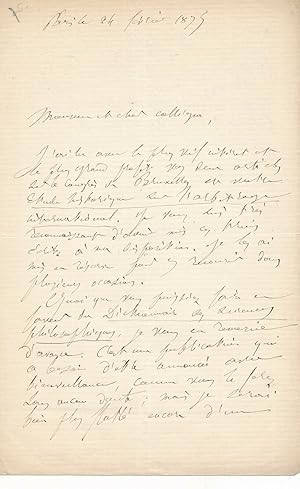 Paris le 24 février 1875
Monsieur et cher collègue,
J'ai lu avec le plus vif intérêt et
le plus grand profit vos deux articles
sur le congrès de Bruxelles et votre
étude historique sur l'arbitrage
international. Je vous suis très
reconnaissant d'avoir mis ces
à ma disposition. Je les ai
mis en réserve pour y recourir dans
plusieurs occasions.
Quoique vous puissiez faire en
faveur du Dictionnaire des sciences
philosophiques, je vous en remercie
d'avance. C'est une publication qui
a besoin d'être annoncée avec
bienveillance, comme vous le ferez
sans aucun doute ; mais je serais
bien plus flatté encore d'une